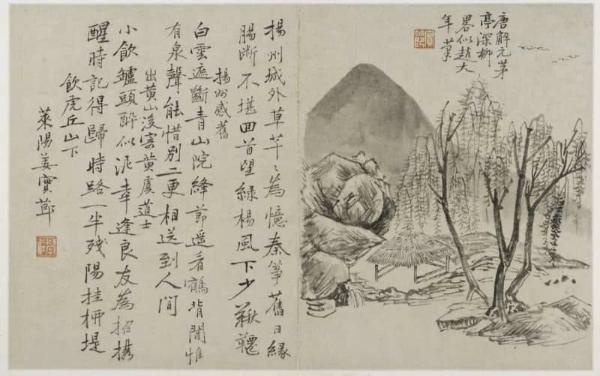 唐解元茅
亭深柳
畧似趙大
年筆
揚州城外草芊〻為憶秦箏舊日緣
腸斷不堪回首望綠楊風下少鞦韆
揚州感舊
白雲遮斷青山院絳節遙看鶴背閒惟
有泉聲能惜別二更相送到人間
出黃山黃虞道士
小飲鑪頭醉似泥幸逢良友為招攜
醒時記得歸時路一半殘陽挂柳堤
飲虎丘山下
萊陽姜實節